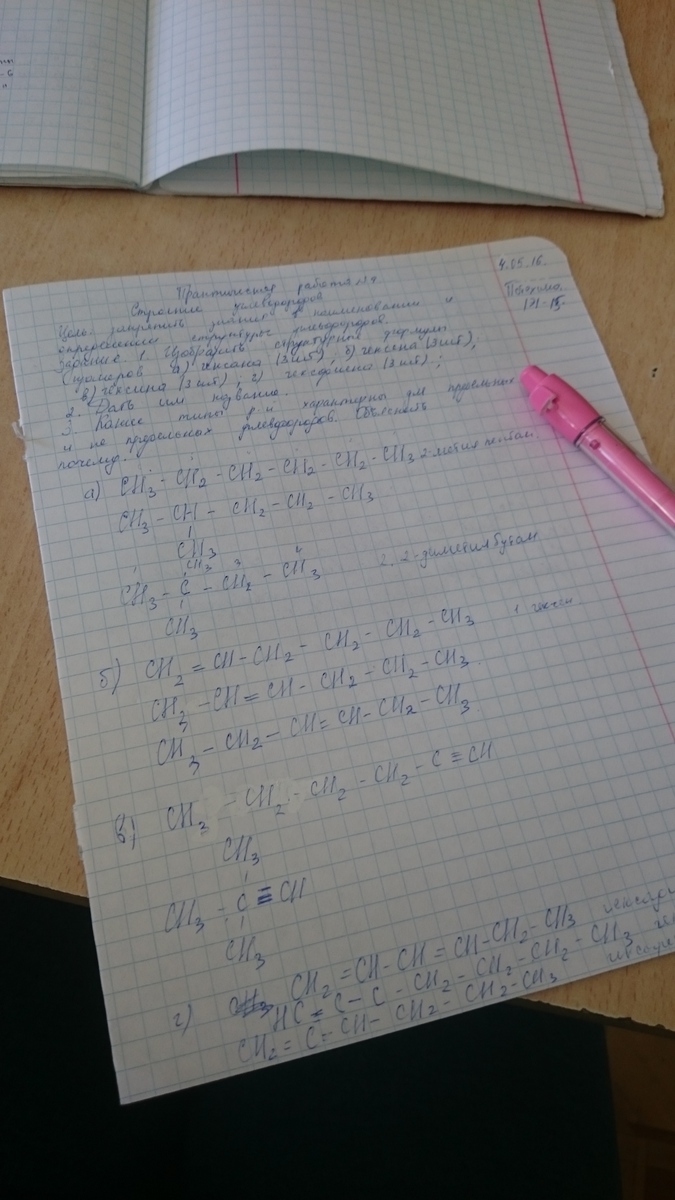 4.05.16.
Практическая работа №4
Строение углеводородов
Цель: закрепить знания в наименовании и
определении структуры углеводородов.
Задание: 1 Изобразить структурные формулы
изомеров а) гексана (3 шт), б) гексена (3 шт),
в) гексина (3 шт); г) (3 шт);
2. Дать им название.
3. Какие типы характерны для предельных
и не предельных углеводородов. Объяснить
почему.
а) CH3 - CH2 - CH2 - CH2 - CH2 - CH3
2-метил пентан.
CH3 - CH - CH2 - CH2 - CH3
CH3
CH3
CH3 - C - CH2 - CH3
2. 2-диметилбутан
CH3
б) CH2 = CH - CH2 - CH2 - CH2 - CH3
1 гексен
CH3 - CH = CH - CH2 - CH2 - CH3
CH3 - CH2 - CH = CH - CH2 - CH3
в) CH3 - CH2 - CH2 - CH2 - C ≡ CH
CH3
CH3 - C ≡ CH
CH3
г) CH2 = CH - CH = CH - CH2 - CH3
HC = C - C - CH2 - CH2 - CH2 - CH3
CH2 = C = CH - CH2 - CH2 - CH3